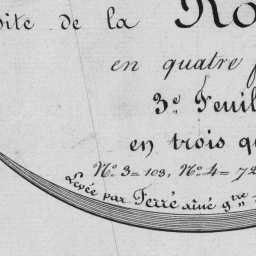 de la Ro
en quatre f
3e Feuil
en trois q
No. 3 = 103, No. 4 = 72
Levée par Ferré aîné gtre